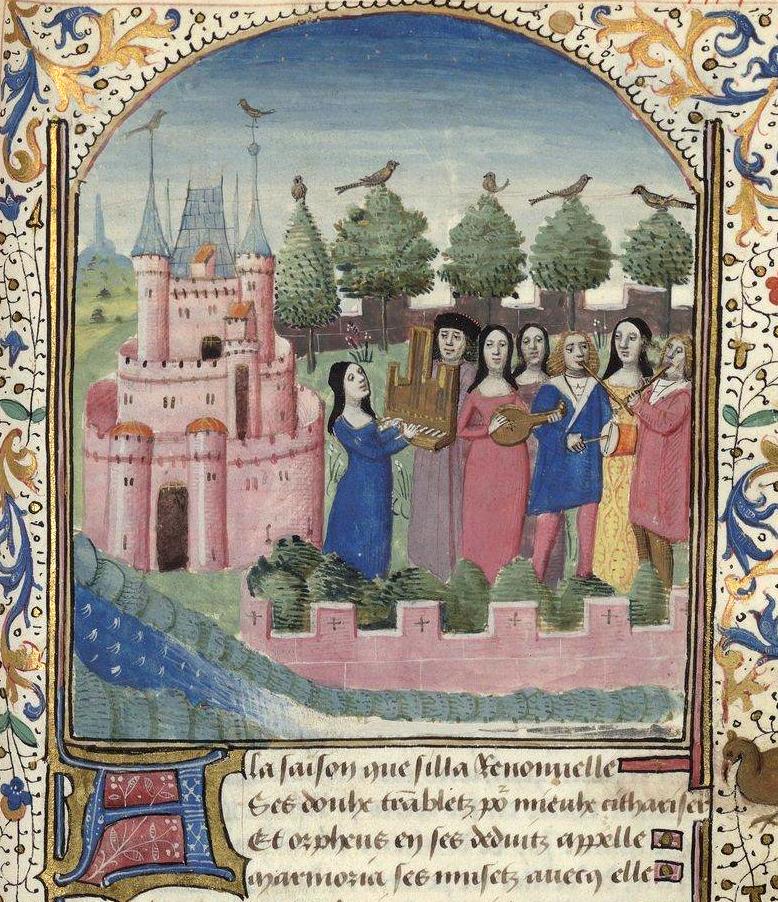 A la saison que silla Renouuelle
Ses doulx trãbletz po² mieulx cithariser
Et orpheus en ses deduitz appelle
marmoria ses musetz auecq elle